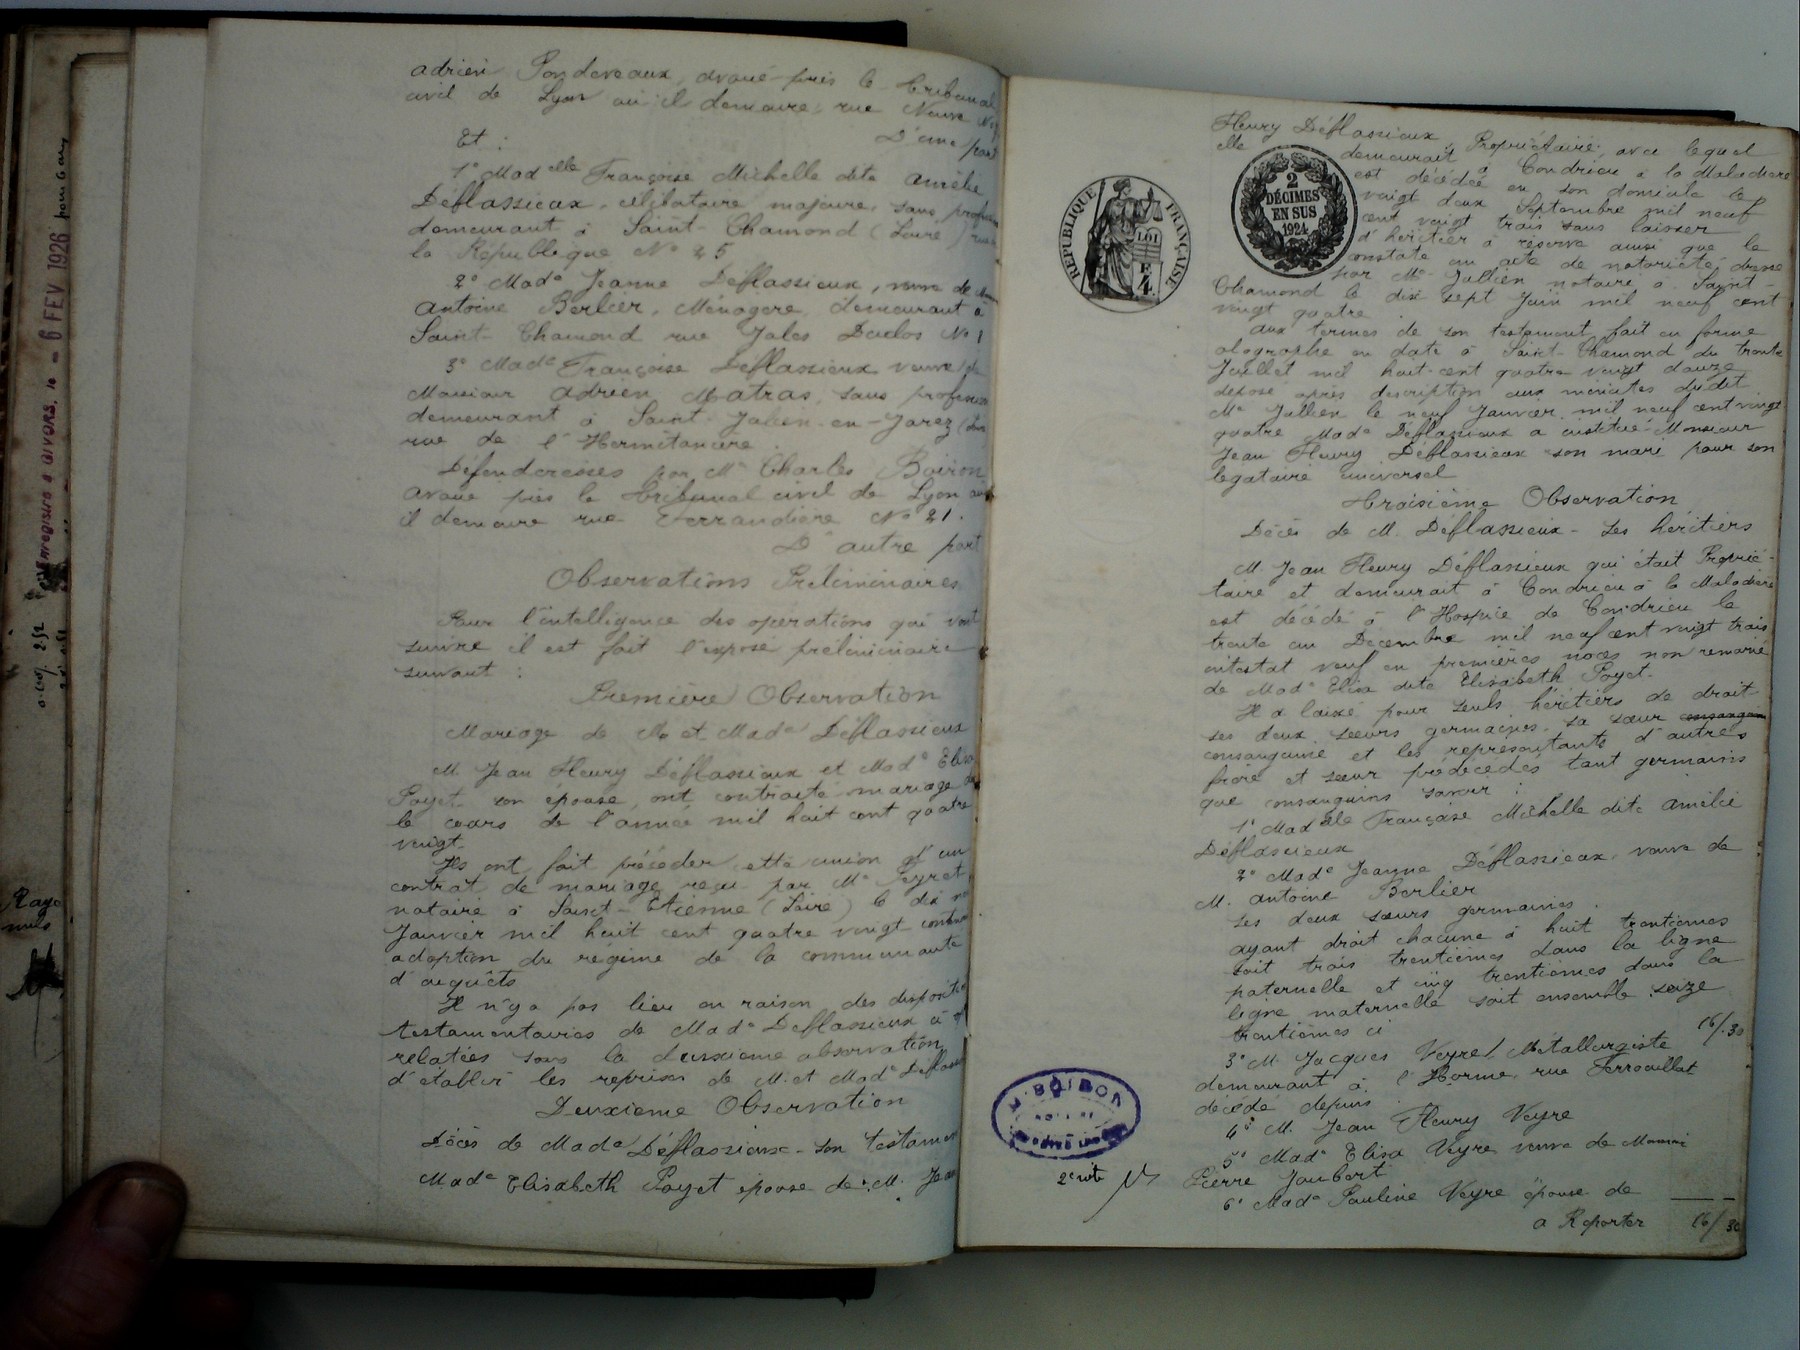 adrien Pondeveaux, avoué près le tribunal
civil de Lyon où il demeure, rue Neuve No
D'une part
Et :
1° Madelle Françoise Michelle dite Amélie
Déflassieux, célibataire majeure, sans profession
demeurant à Saint-Chamond (Loire) rue de
la République No 25
2° Made Jeanne Déflassieux, veuve de
Antoine Berlier, Ménagère, demeurant à
Saint-Chamond rue Jules Duclos No 1
3° Made Françoise Déflassieux veuve de
Monsieur Adrien Matras, sans profession
demeurant à Saint-Julien-en-Jarez
rue de l'Hermitancière
Défenderesses par Me Charles Boiron
avoué près le tribunal civil de Lyon où
il demeure rue Ferrandière No 21.
D'autre part
Observations Préliminaires
Pour l'intelligence des opérations qui vont
suivre il est fait l'exposé préliminaire
suivant :
Première Observation
Mariage de M. et Made Déflassieux
M. Jean Fleury Déflassieux et Made Elisa
Poyet son épouse, ont contracté mariage
le cours de l'année mil huit cent quatre
vingt.
Ils ont fait précéder cette union d'un
contrat de mariage reçu par Me Peyret
notaire à Saint-Etienne (Loire) le dix
Janvier mil huit cent quatre vingt
adoption du régime de la communauté
d'acquêts
Il n'y a pas lieu en raison des
testamentaires de Made Déflassieux
relatées sous la deuxième observation
d'établir les reprises de M. et Made Déflassieux
Deuxième Observation
Décès de Made Déflassieux - son testament
Made Elisabeth Poyet épouse de M. Jean
Fleury Déflassieux, Propriétaire, avec lequel
elle demeurait à Condrieu à la Maladière
est décédée en son domicile le
vingt deux Septembre mil neuf
cent vingt trois sans laisser
d'héritier à réserve ainsi que le
constate un acte de notoriété dressé
par Me Jullien notaire à Saint-
Chamond le dix sept Juin mil neuf cent
vingt quatre.
Aux termes de son testament fait en forme
olographe en date à Saint-Chamond du trente
Juillet mil huit cent quatre vingt douze
déposé après description aux minutes dudit
Me Jullien le neuf Janvier mil neuf cent vingt
quatre Made Déflassieux a institué Monsieur
Jean Fleury Déflassieux son mari pour son
légataire universel
Troisième Observation
Décès de M. Déflassieux - Ses héritiers
M. Jean Fleury Déflassieux qui était Proprié-
taire et demeurait à Condrieu à la Maladière
est décédé à l'Hospice de Condrieu le
trente un Décembre mil neuf cent vingt trois
intestat veuf en premières noces non remarié
de Made Elisa dite Elisabeth Poyet.
Il a laissé pour seuls héritiers de droit
ses deux sœurs germaines, sa sœur consanguin
consanguine et les représentants d'autres
frère et sœur prédécédés tant germains
que consanguins savoir :
1° Madelle Françoise Michelle dite Amélie
Déflassieux
2° Made Jeanne Déflassieux, veuve de
M. Antoine Berlier
Ses deux sœurs germaines.
ayant droit chacune à huit trentièmes
soit trois trentièmes dans la ligne
paternelle et cinq trentièmes dans la
ligne maternelle soit ensemble seize
trentièmes ci 16/30
3° M. Jacques Veyre, Métallurgiste
demeurant à l'Horme, rue Ferrouillat
décédé depuis.
4° M. Jean Fleury Veyre
5° Made Elisa Veyre veuve de Monsieur
Pierre Joubert
6° Made Pauline Veyre épouse de
a Reporter 16/30
RÉPUBLIQUE FRANÇAISE
LOI
E
4.
2
DÉCIMES
EN SUS
1924
BOIRON
2e rôle
Enregistré à GIVORS, le - 6 FEV 1926